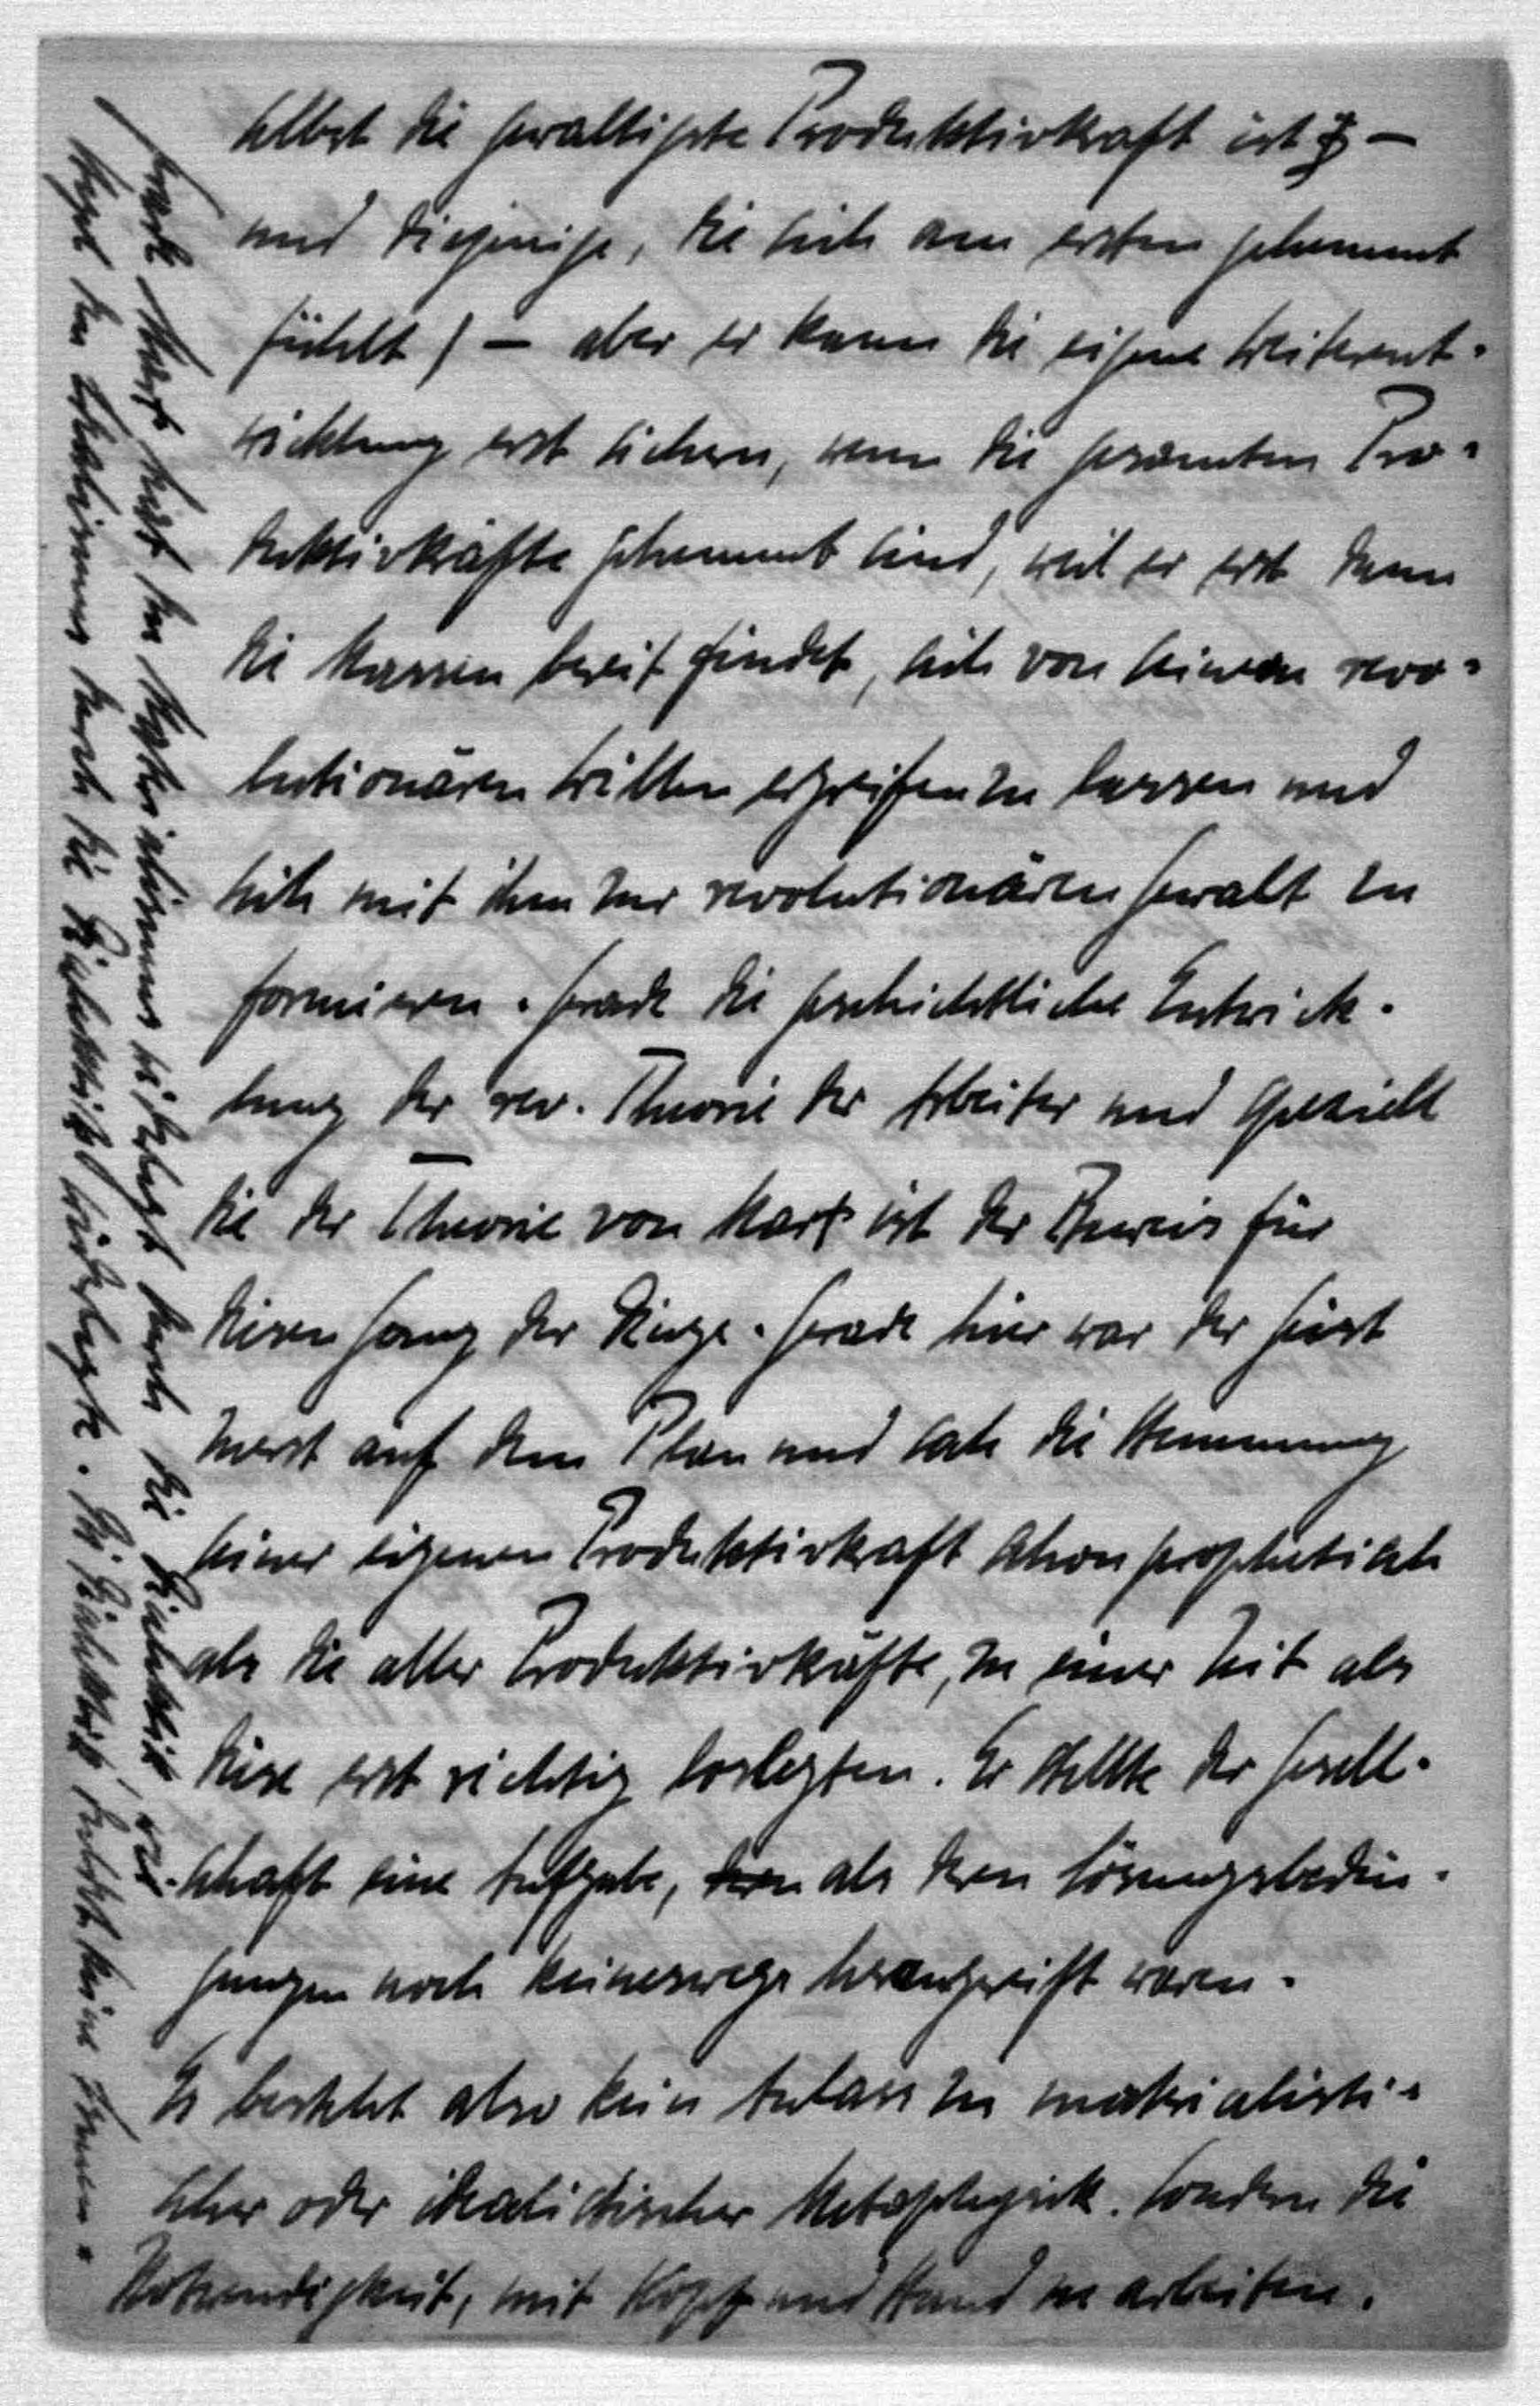 selbst die gewaltigste Produktivkraft ist –
und diejenige, die sich am ersten gehemmt
fühlt) – aber er kann die eigene Weiterent-
wicklung erst sichern, wenn die gesamten Pro-
duktivkräfte gehemmt sind, weil er erst dann
die Massen bereit findet, sich von seinem revo-
lutionären Willen ergreifen zu lassen und
sich mit ihm zur revolutionären Gewalt zu
formieren. Gerade die geschichtliche Entwick-
lung der rev. Theorie der Arbeiter und speziell
die der Theorie von Marx ist der Beweis für
diesen Gang der Dinge. Gerade hier war der Geist
zuerst auf dem Plan und sah die Hemmung
seiner eigenen Produktivkraft schon prophetisch
als die aller Produktivkräfte, zu einer Zeit als
diese erst richtig loslegten. Er stellte der Gesell-
schaft eine Aufgabe, als deren Lösungsbedin-
gungen noch keineswegs herangereift waren.
Es besteht also kein Anlass zu materialisti-
scher oder idealistischer Metaphysik. Sondern die
Notwendigkeit, mit Kopf und Hand zu arbeiten.
Marx hat den Materialismus widerlegt durch die Dialektik, wie
Hegel den Idealismus durch die Dialektik widerlegte. Die Dialektik duldet keine